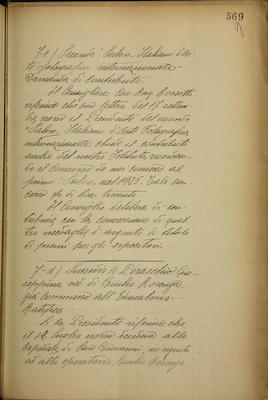 569
7-c) Secondo "Salon" Italiano d'ar-
te fotografica internazionale -
Domanda di contributo.
Il Consigliere Cav. Rag.
riferisce che con lettera del 17 settem-
bre, il Presidente del secondo
"Salon" Italiano d'Arte Fotografica
internazionale chiede il contributo
anche del nostro Istituto, ricordan-
do il concorso da noi concesso al
primo "Salon" nel 1925.
di lire
Il Consiglio delibera di con-
tribuire con la concessione di quat-
tro medaglie d'argento a titolo
di premi per gli espositori.
7-d) Sussidio a
seppina ved. di Giulio
già commesso all'
Il Presidente riferisce che
il luglio decedeva allo
Ospedale di San Giovanni, in seguito
ad atto operatorio, Giulio